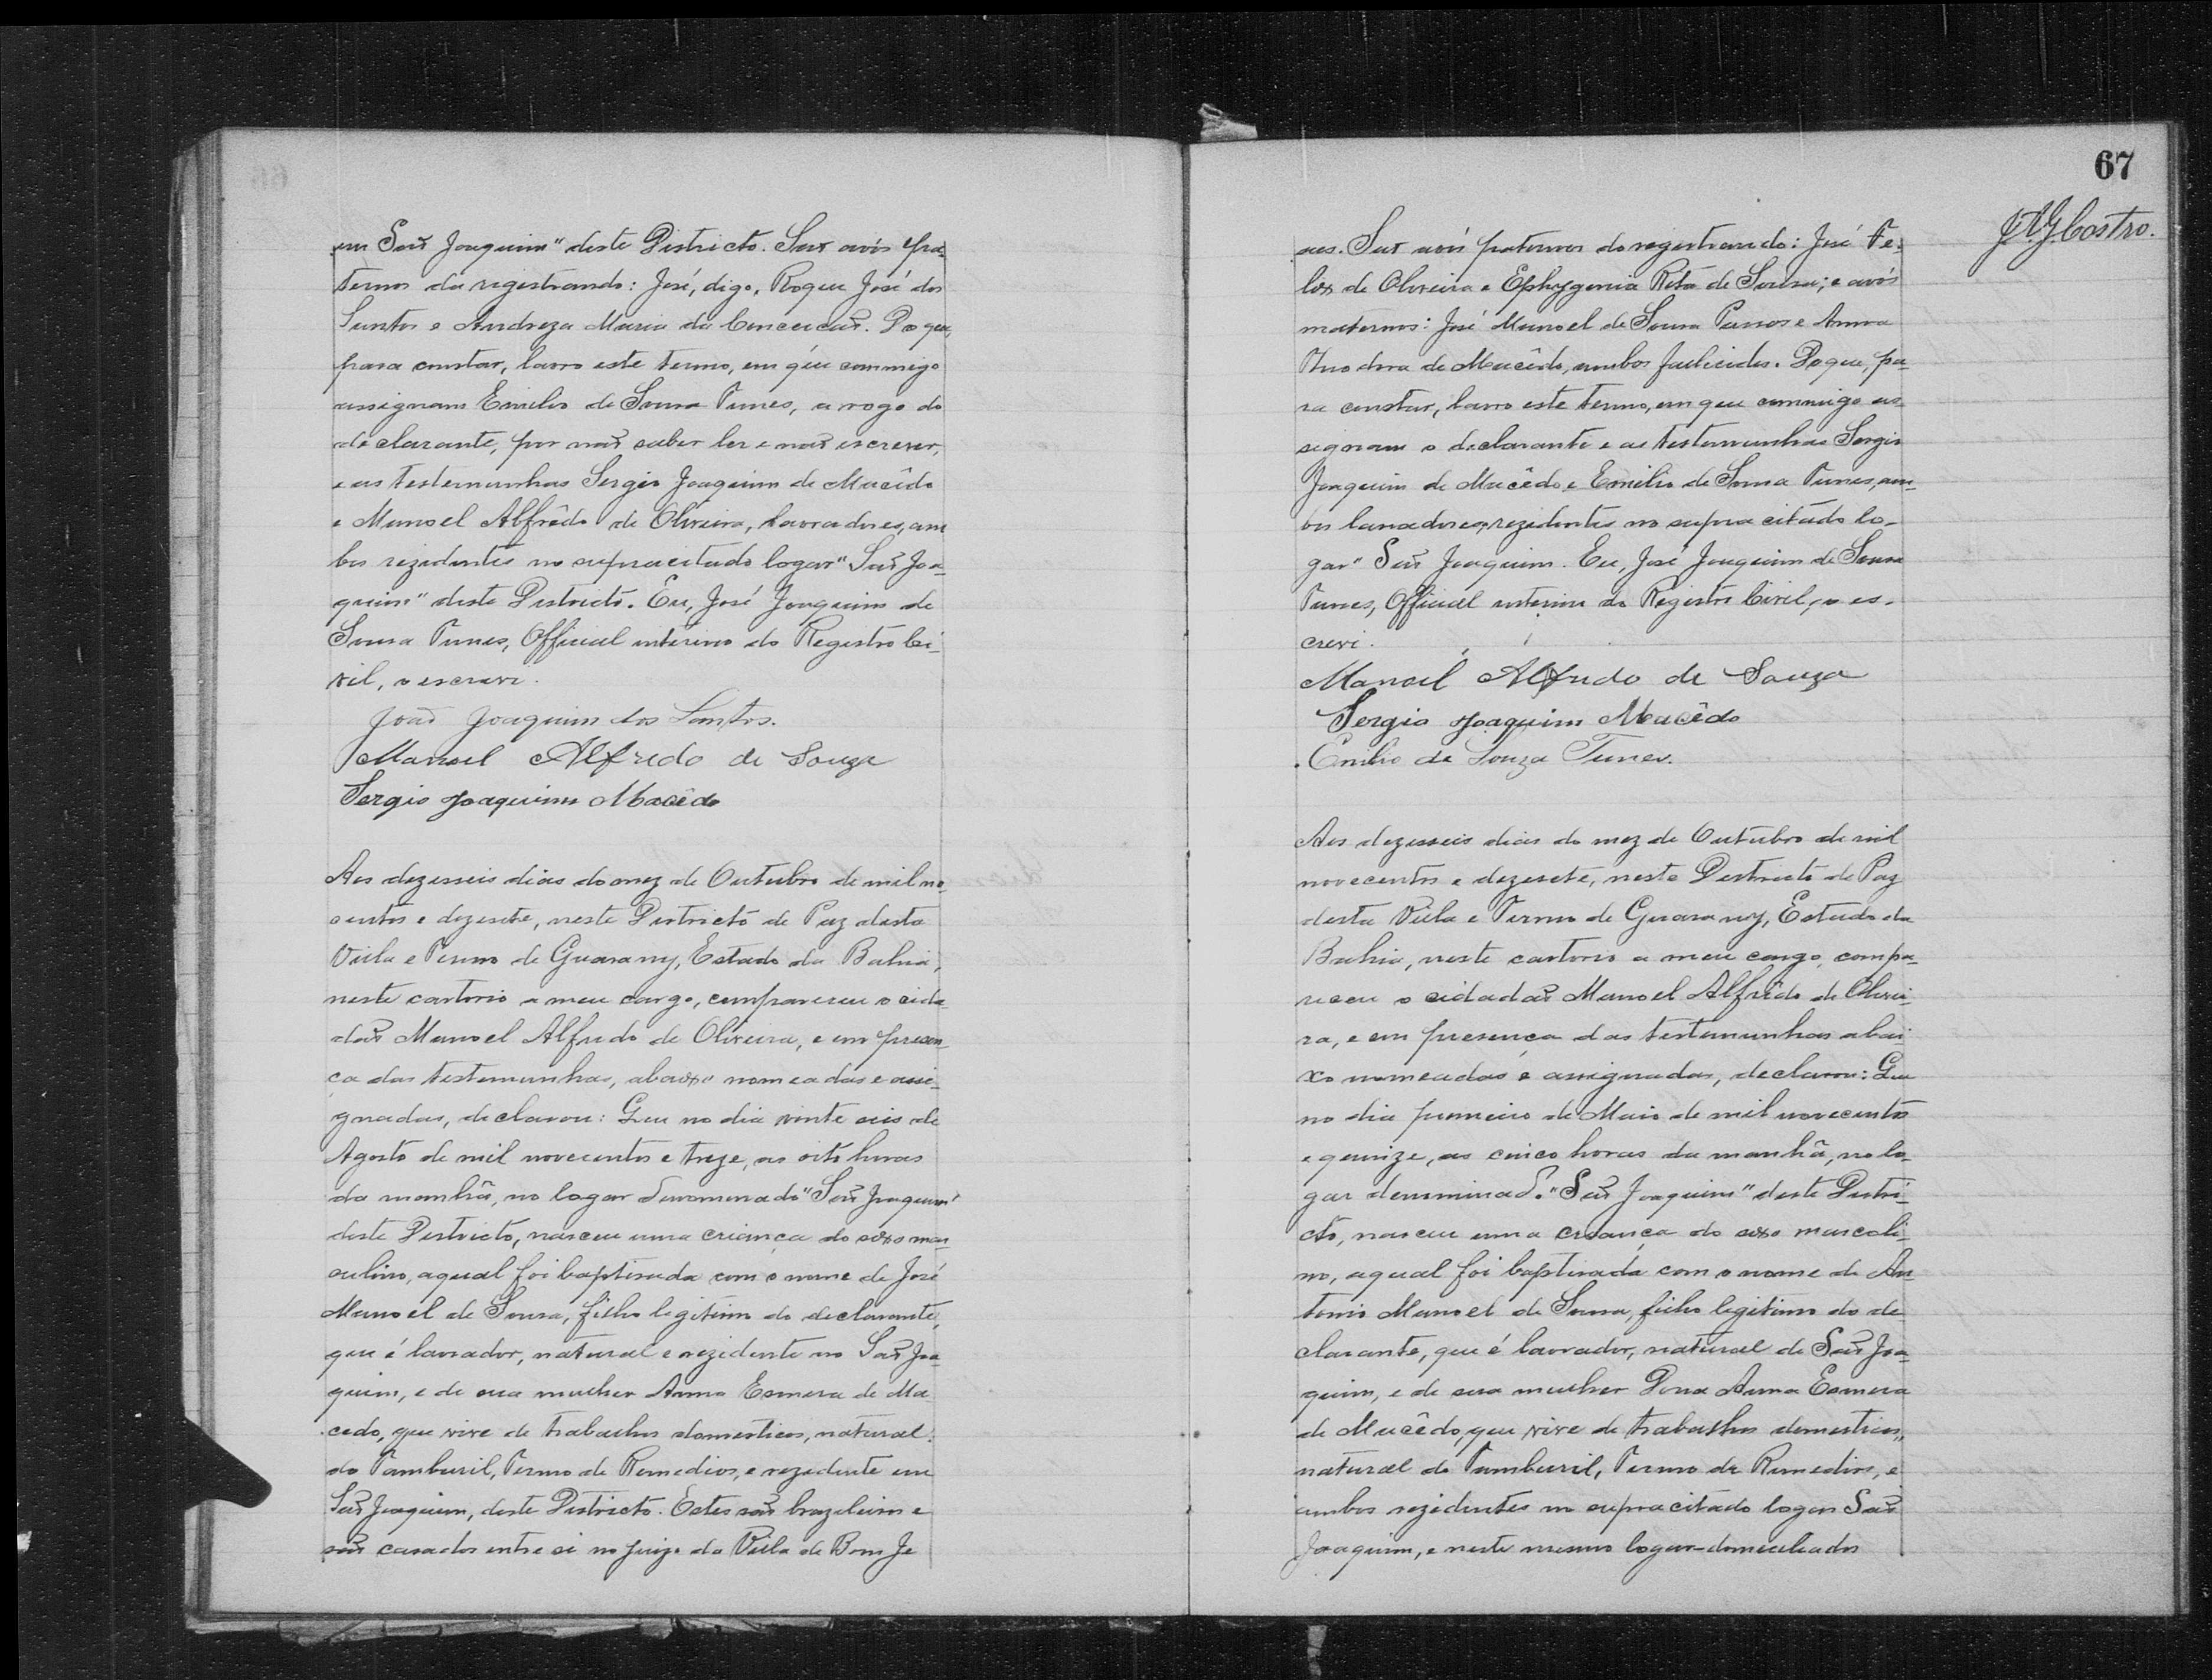 em São Joaquim" deste Districto. São avós pa-
ternos da registrando: José, digo, Roque José dos
Santos e Andreza Maria da Conceicão. Do que,
para constar, lavro este termo, em que commigo
assignam Emilio de Sousa Tunes, a rogo do
declarante, por não saber ler e não escrever,
e as testemunhas Sergio Joaquim de Macêdo
e Manoel Alfrêdo de Oliveira, lavradores, am
bos rezidentes no supracitado logar "São Joa-
quim" deste Districto. Eu, José Joaquim de
Sousa Tunes, Official interino do Registro Ci-
vil, o escrevi.
João Joaquim dos Santos.
Manoel Alfredo de Souza
Sergio Joaquim Macêdo
Aos dezesseis dias do mez de Outubro de mil no-
centos e dezesete, neste Districto de Paz desta
Villa e Termo de Guarany, Estado da Bahia,
neste cartorio a meu cargo, compareceu o cida-
dão Manoel Alfredo de Oliveira, e em presen-
ça das testemunhas, abaixo nomeadas e assi-
gnadas, declarou: Que no dia vinte seis de
Agosto de mil novecentos e treze, as oito horas
da manhã, no logar denominado "São Joaquim"
deste Districto, nasceu uma criança do sexo mas
culino, a qual foi baptisada com o nome de José
Manoel de Sousa, filho legitimo do declarante,
que é lavrador, natural e rezidente no São Joa-
quim, e de sua mulher Anna Esmera de Ma
cedo, que vive de trabalhos domesticos, natural
do Tamburil, Termo de Remedios, e rezidente em
São Joaquim, deste Districto. Estes são brazileiros e
são casados entre si no juizo da Villa de Bom Je
67
JAGCastro.
sus. São avós paternos do registrando: José Fe-
lix de Oliveira e Ephygenia Rita de Sousa; e avós
maternos: José Manoel de Sousa Passos e Anna
Theodora de Macêdo, ambos fallecidos. Do que, pa-
ra constar, lavro este termo, em que commigo as-
signam o declarante e as testemunhas Sergio
Joaquim de Macêdo e Emilio de Sousa Tunes, am-
bos lavradores, rezidentes no supra citado lo-
gar "São Joaquim. Eu, José Joaquim de Sousa
Tunes, Official interino do Registro Civil, o es-
crevi.
Manoel Alfredo de Souza
Sergio Joaquim Macêdo
Emilio de Souza Tunes.
Aos dezesseis dias do mez de Outubro de mil
novecentos e dezesete, neste Districto de Paz
desta Villa e Termo de Guarany, Estado da
Bahia, neste cartorio a meu cargo, compa-
receu o cidadão Manoel Alfrêdo de Olivei-
ra, e em presença das testemunhas abai-
xo nomeadas e assignadas, declarou: Que
no dia primeiro de Maio de mil novecentos
e quinze, as cinco horas da manhã, no lo-
gar denominado "São Joaquim" deste Distri-
cto, nasceu uma criança do sexo mascoli-
no, a qual foi baptisada com o nome de An
tonio Manoel de Sousa, filho legitimo do de
clarante, que é lavrador, natural de São Joa-
quim, e de sua mulher Dona Anna Esmera
de Macêdo, que vive de trabalhos domesticos,
natural do Tamburil, Termo de Remedios, e
ambos rezidentes no supracitado logar São
Joaquim, e neste mesmo logar domiciliados